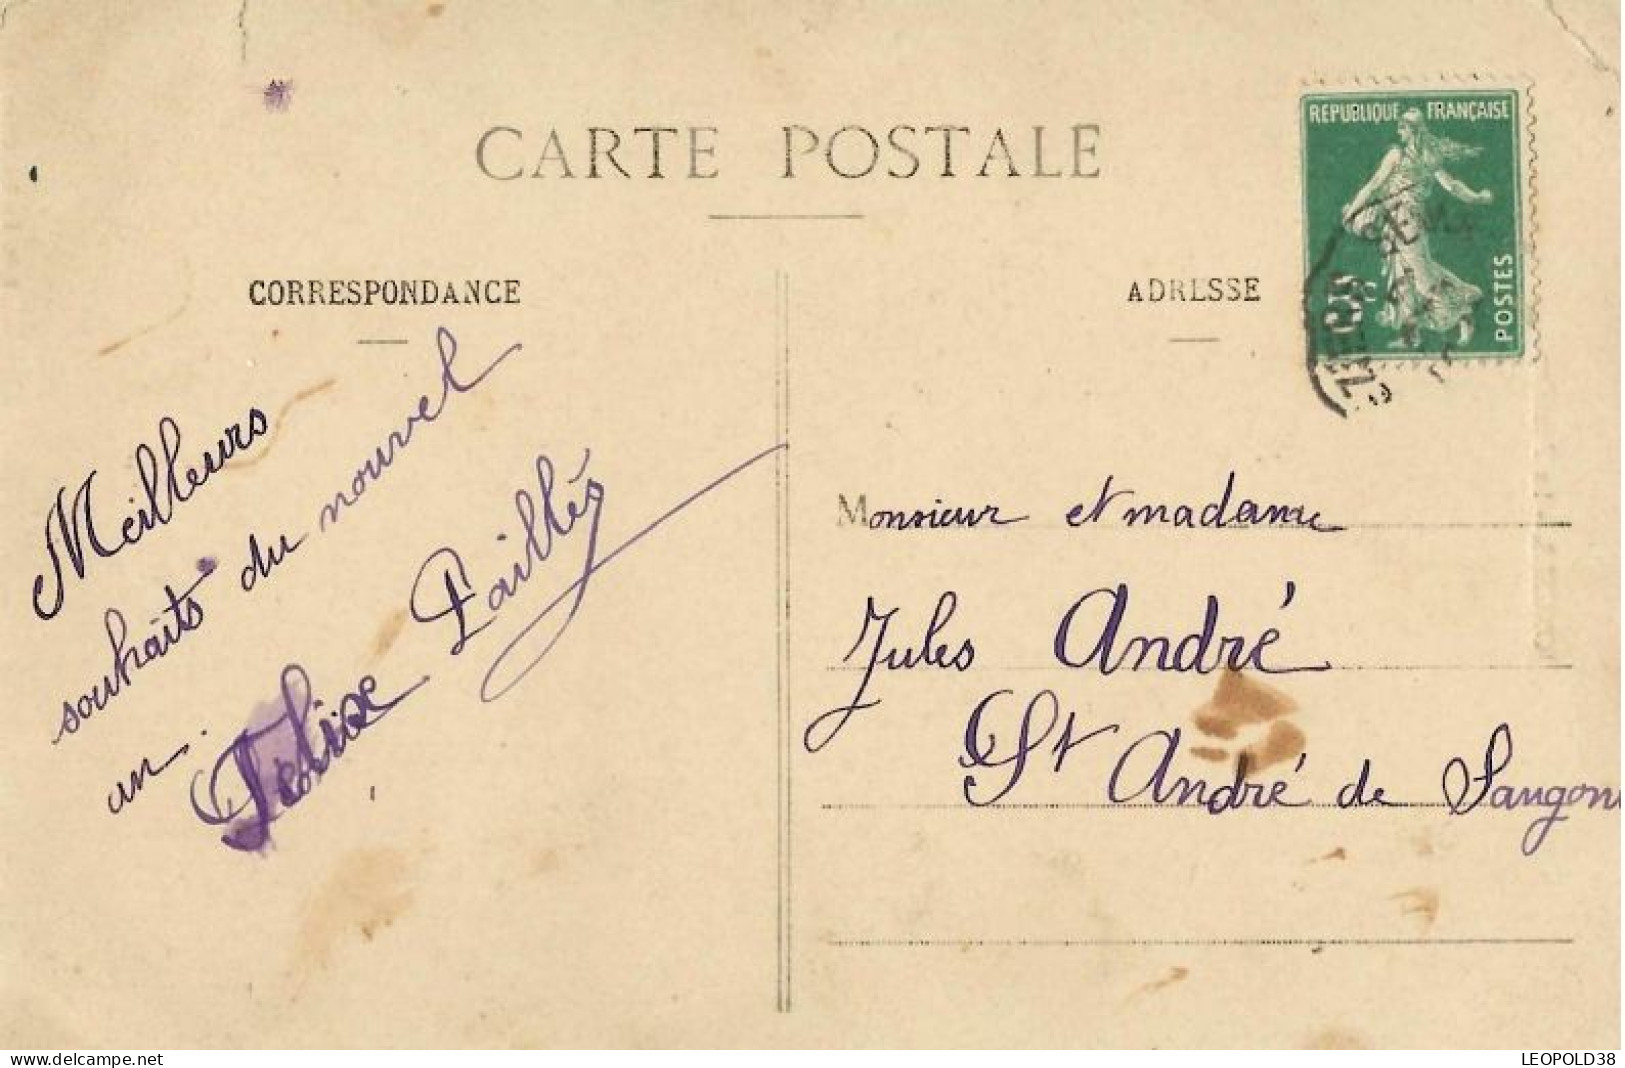 CARTE POSTALE
CORRESPONDANCE
ADRESSE
REPUBLIQUE FRANÇAISE
POSTES
Meilleurs
souhaits du nouvel
an.
Félix Pailhés
Monsieur et madame
Jules André
St André de Sangoni
www.delcampe.net
LEOPOLD38